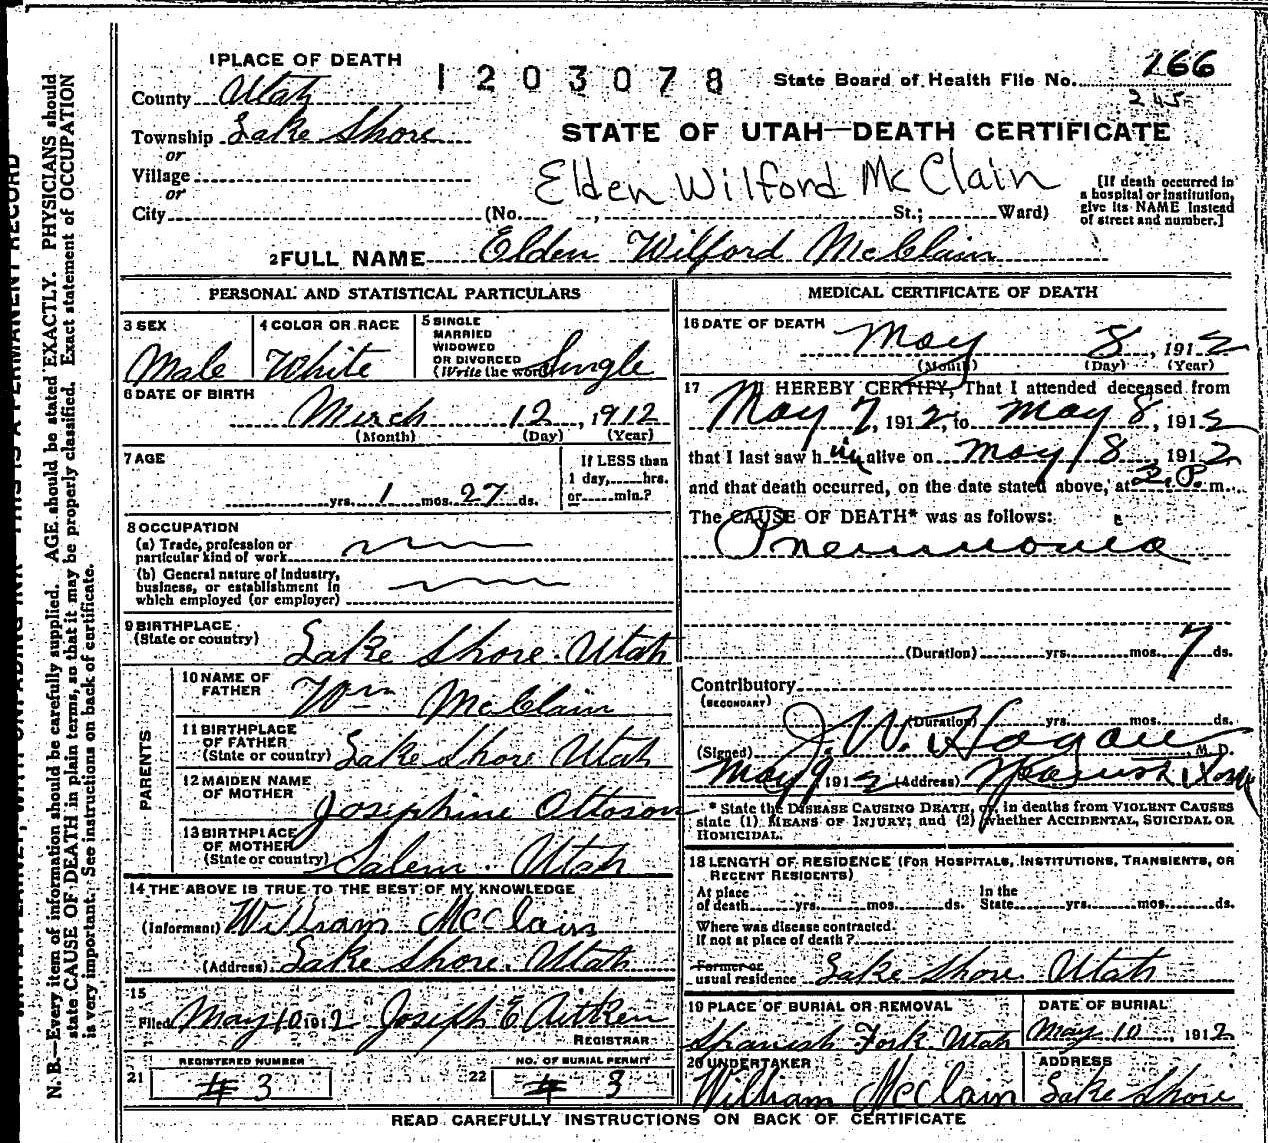 1 PLACE OF DEATH
1203078
State Board of Health File No. 166
245
County Utah
Township Lake Shore
or
Village
or
City
STATE OF UTAH—DEATH CERTIFICATE
Elden Wilford McClain
(No. , St.; Ward)
[If death occurred in
a hospital or institution,
give its NAME instead
of street and number.]
2 FULL NAME Elden Wilford McClain
PERSONAL AND STATISTICAL PARTICULARS
3 SEX
Male
4 COLOR OR RACE
White
5 SINGLE
MARRIED
WIDOWED
OR DIVORCED
(Write the word) Single
6 DATE OF BIRTH
March 12, 1912
(Month) (Day) (Year)
7 AGE
yrs. 1 mos. 27 ds.
If LESS than
1 day, hrs.
or min.?
8 OCCUPATION
(a) Trade, profession or
particular kind of work
(b) General nature of industry,
business, or establishment in
which employed (or employer)
9 BIRTHPLACE
(State or country) Lake Shore. Utah
PARENTS
10 NAME OF
FATHER Wm McClain
11 BIRTHPLACE
OF FATHER
(State or country) Lake Shore Utah
12 MAIDEN NAME
OF MOTHER Josephine Ottoson
13 BIRTHPLACE
OF MOTHER
(State or country) Salem. Utah
14 THE ABOVE IS TRUE TO THE BEST OF MY KNOWLEDGE
(Informant) William McClain
(Address) Lake Shore. Utah
15
Filed May 10 1912 Joseph E Aitken
REGISTRAR
REGISTERED NUMBER
21 # 3
NO. OF BURIAL PERMIT
22 # 3
MEDICAL CERTIFICATE OF DEATH
16 DATE OF DEATH
May 8, 1912
(Month) (Day) (Year)
17 I HEREBY CERTIFY, That I attended deceased from
May 7, 1912, to May 8, 1912
that I last saw him alive on May 8, 1912
and that death occurred, on the date stated above, at 2.P. m.
The CAUSE OF DEATH* was as follows:
Pneumonia
(Duration) yrs. mos. 7 ds.
Contributory
(SECONDARY)
(Duration) yrs. mos. ds.
(Signed) J. W. Hagan, M. D.
May 9 1912 (Address) Spanish Fork
* State the DISEASE CAUSING DEATH, or, in deaths from VIOLENT CAUSES
state (1) MEANS OF INJURY; and (2) whether ACCIDENTAL, SUICIDAL OR
HOMICIDAL.
18 LENGTH OF RESIDENCE (FOR HOSPITALS, INSTITUTIONS, TRANSIENTS, OR
RECENT RESIDENTS)
At place
of death yrs. mos. ds.
In the
State yrs. mos. ds.
Where was disease contracted
if not at place of death?
Former or
usual residence Lake Shore Utah
19 PLACE OF BURIAL OR REMOVAL
Spanish Fork Utah
DATE OF BURIAL
May 10, 1912
20 UNDERTAKER
William McClain
ADDRESS
Lake Shore
READ CAREFULLY INSTRUCTIONS ON BACK OF CERTIFICATE
N. B.—Every item of information should be carefully supplied. AGE should be stated EXACTLY. PHYSICIANS should
state CAUSE OF DEATH in plain terms, so that it may be properly classified. Exact statement of OCCUPATION
is very important. See instructions on back of certificate.